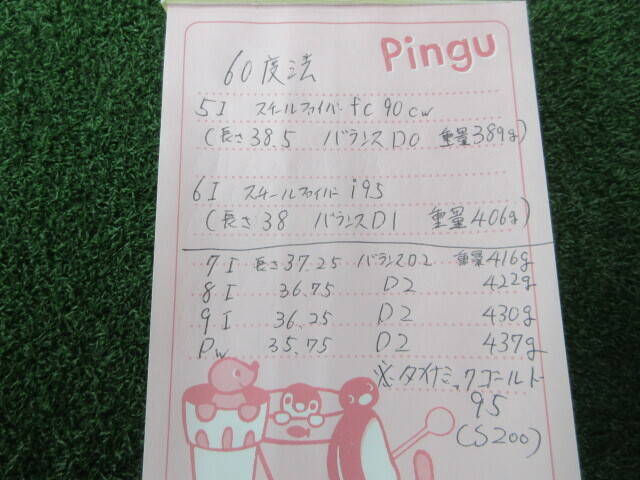 Pingu
60度法
5I スチールファイバー fc 90 cw
(長さ 38.5 バランス D0 重量 389g)
6I スチールファイバー i95
(長さ 38 バランス D1 重量 406g)
7I 長さ 37.25 バランス D2 重量 416g
8I 36.75 D2 422g
9I 36.25 D2 430g
Pw 35.75 D2 437g
※ダイナミックゴールド
95
(S200)